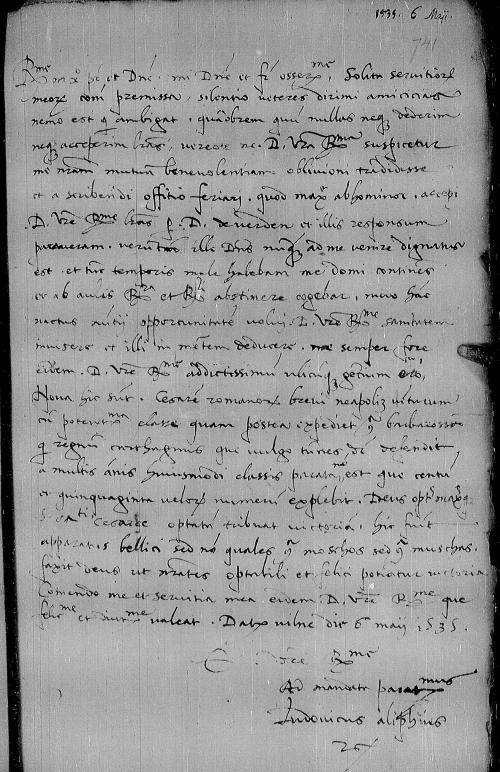 1535. 6 Maij.
741
R.me in xo pr et Dne. mi Dne et fr osser.me. Solita servitiorz
meorz com premissa, silentio veteres dirimi amicicias
nemo est q ambigat. quãobrem qui nullas neq dederim
neq acceperim lras, vereor ne. D. Vra R.ma suspicetur
me nram mutuã benevolentiam oblivioni tradidisse
et a scribendi offitio feriari. quod max abhominor. accepi
.D. Vre R.me lras p. D. de verden et illis responsum
paraveram. verũ ille Dns nũq ad me venire dignatus
est. et tũc temporis male habebam me domi contines
et ab avijs et abstinere cogebar. nunc hãc
nactus nuntij opportunitatẽ volui .D. Vre R.me. sanitatem
invisere et illi in mẽtem deducere. me semper fore
eidem .D. Vre R.me addictissimũ ubicũq gentium ero,
Nova hic sũt. Cesarẽ romanorz brevi neapolis iturum
cũ potentma classe quam postea expediet barbarossã
q regnũ carthaginis que vulgo tunes, di defendit
a multis ãnis huiusmodi classis parata nõ est que centũ
et quinquaginta velorz numerũ explebit. Deus opt maxq
Cesaree optatã tribuat victoriã. hic fuit
apparatus bellici sed nõ quales moschos sed muschas.
faxit deus ut nrates optabili et felici potiãtur victoria
Comendo me et servitia mea eidem .D. Vre R.me que
felme et diutme valeat. Datz vilne die 6 maij 1535.
E. Vre R.me
Ad mandata paratmus
Ludovicus aliphius